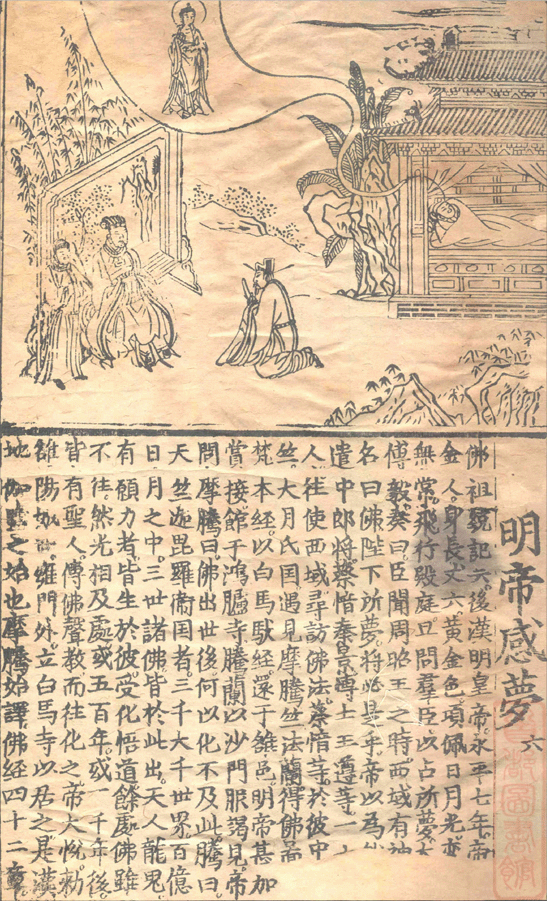 明帝感夢 六
佛祖統記云後漢明皇帝永平七年帝
金人身長丈六黃金色項佩日月光
無常飛行殿庭旦問羣臣以占所夢
傅毅奏曰臣聞周昭王之時西域有神
名曰佛陛下所夢將必是乎帝以爲
遣中郎將蔡愔秦景博士王遵等一
人往使西域尋訪佛法蔡愔等於彼中
竺大月氏国遇見摩騰竺法蘭得佛
梵本經以白馬馱經還于雒邑明帝甚加
賞接館于鴻臚寺騰蘭以沙門服謁見帝
問摩騰曰佛出世後何以化不及此騰曰
天竺迦毘羅衛国者三千大千世界百億
日月之中三世諸佛皆於此出天人龍鬼
有願力者皆生於彼受化悟道餘處佛雖
不往然光相及處或五百年或一千年後
皆有聖人傳佛聲教而往化之帝大悅勅
雒陽城西雍門外立白馬寺以居之是漢
地伽藍之始也摩騰始譯佛經四十二章
圖書館